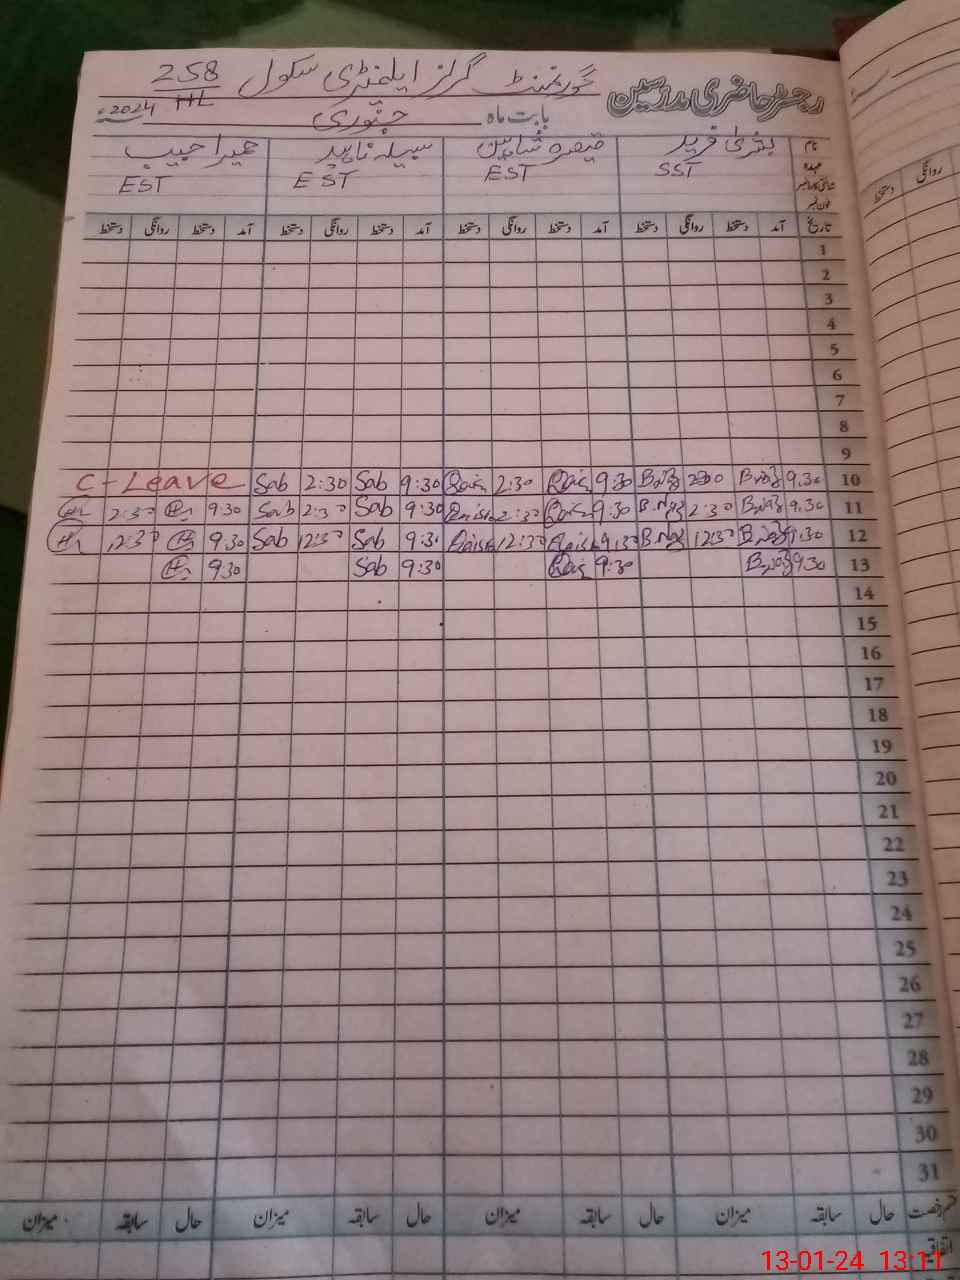 رجسٹر حاضری مدرسین گورنمنٹ گرلز ایلمنٹری سکول 258/HL
بابت ماہ جنوری 2024ء
نام بشریٰ فرید قیصرہ شاہین سبیلہ ناہید حمیرا حبیب
عہدہ SST EST EST EST
شناختی کارڈ نمبر
فون نمبر
تاریخ آمد دستخط روانگی دستخط آمد دستخط روانگی دستخط آمد دستخط روانگی دستخط آمد دستخط روانگی دستخط
1
2
3
4
5
6
7
8
9
10 9.30 2:30 9:30 2:30 9:30 Sab 2:30 Sab C-Leave
11 9.30 2:30 9:30 2:30 9:30 Sab 2:30 Sab 9:30 2:30
12 9:30 12:30 9:30 12:30 9:30 Sab 12:30 Sab 9:30 12:30
13 9:30 9:30 9:30 Sab 9:30
14
15
16
17
18
19
20
21
22
23
24
25
26
27
28
29
30
31
قسم رخصت حال سابقہ میزان حال سابقہ میزان حال سابقہ میزان حال سابقہ میزان
اتفاقیہ
13-01-24 13:11
روانگی دستخط